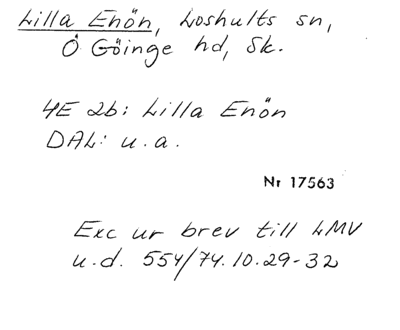 Lilla Enön, Loshults sn,
Ö Göinge hd, Sk.
4E 2b: Lilla Enön
DAL: u.a.
Nr 17563
Exc ur brev till LMV
u.d. 554/74.10.29-32